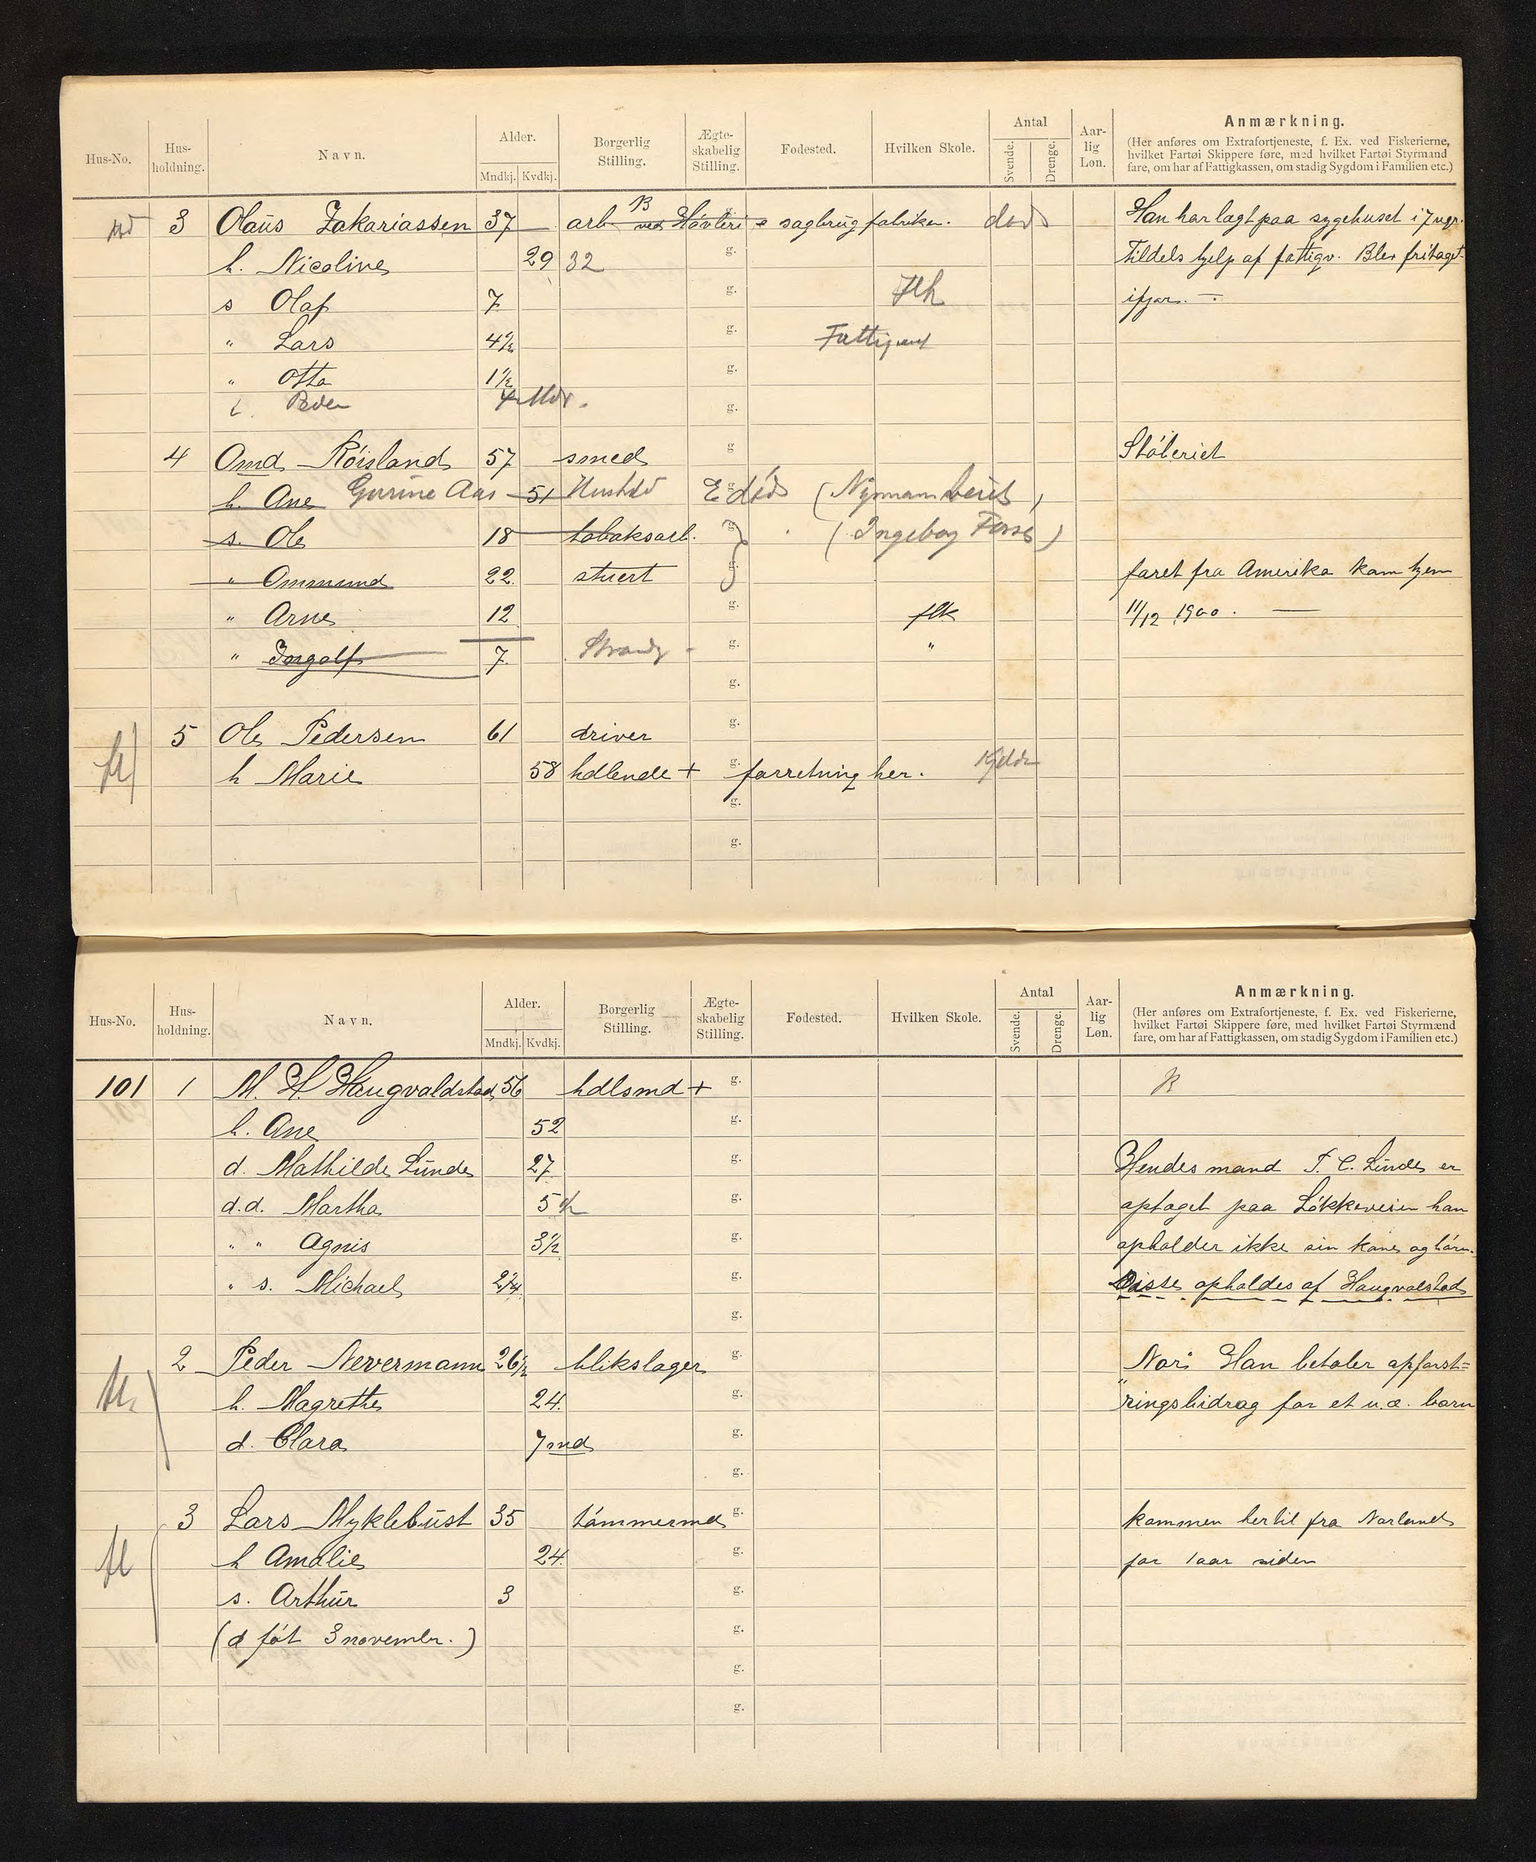 Hus-No. Hus-holdning. Navn. Alder. Mndkj. Kvdkj. Borgerlig Stilling. Ægte-skabelig Stilling. Fødested. Hvilken Skole. Antal Svende. Drenge. Aar-lig Løn. Anmærkning.
(Her anføres om Extrafortjeneste, f. Ex. ved Fiskerierne,
hvilket Fartøi Skippere føre, med hvilket Fartøi Styrmænd
fare, om har af Fattigkassen, om stadig Sygdom i Familien etc.)
3 Olaus Zakariassen 37 arb. ved Høvleri & sagbrug fabriken. død Han har lagt paa sygehuset i 7 uger.
h. Nicoline 29 32 g. Tildels hjelp af fattigv. Blev fritaget
s Olaf 7 g. Hk ifjor. —
" Lars 4½ g. Fattigvæs
" Otto 1½ g.
" Peder 4 Mdr. g.
4 Omd Röisland 57 smed g Støberiet
h. Ane Gurine Aas 51 Hustrü E død (Nymann )
s. Ole 18 tobaksarb. g. (Ingeborg )
" Ommund 22 stuert g. faret fra Amerika kom hjem
" Arne 12 g. flk 11/12 1900. —
" Ingolf 7 Strand g. "
g.
5 Ole Pedersen 61 driver g.
h Marie 58 hdlende + g. forretning her. Kjeld
g.
g.
Hus-No. Hus-holdning. Navn. Alder. Mndkj. Kvdkj. Borgerlig Stilling. Ægte-skabelig Stilling. Fødested. Hvilken Skole. Antal Svende. Drenge. Aar-lig Løn. Anmærkning.
(Her anføres om Extrafortjeneste, f. Ex. ved Fiskerierne,
hvilket Fartøi Skippere føre, med hvilket Fartøi Styrmænd
fare, om har af Fattigkassen, om stadig Sygdom i Familien etc.)
101 1 M. H. Haugvaldstad 56 hdlsmd + g.
h. Ane 52 g.
d. Mathilde Lunde 27 g. Hendes mand T. C. Lunde er
d.d. Martha 5½ g. optaget paa Løkkeveien han
" " Agnis 3½ g. opholder ikke sin kone og børn.
" s. Michael 2¼ g. Disse opholdes af Haugvalstad
g.
2 Peder Nevermann 26½ blikslager g. Nori Han betaler opforst=
h. Magrethe 24 g. ringsbidrag for et u.æ. barn
d. Clara 7 md g.
g.
3 Lars Myklebust 35 tømmermd g. kommen hertil fra Norland
h Amalie 24 g. for 1 aar siden
s. Arthur 3 g.
(d født 3 novembr.) g.
g.
g.